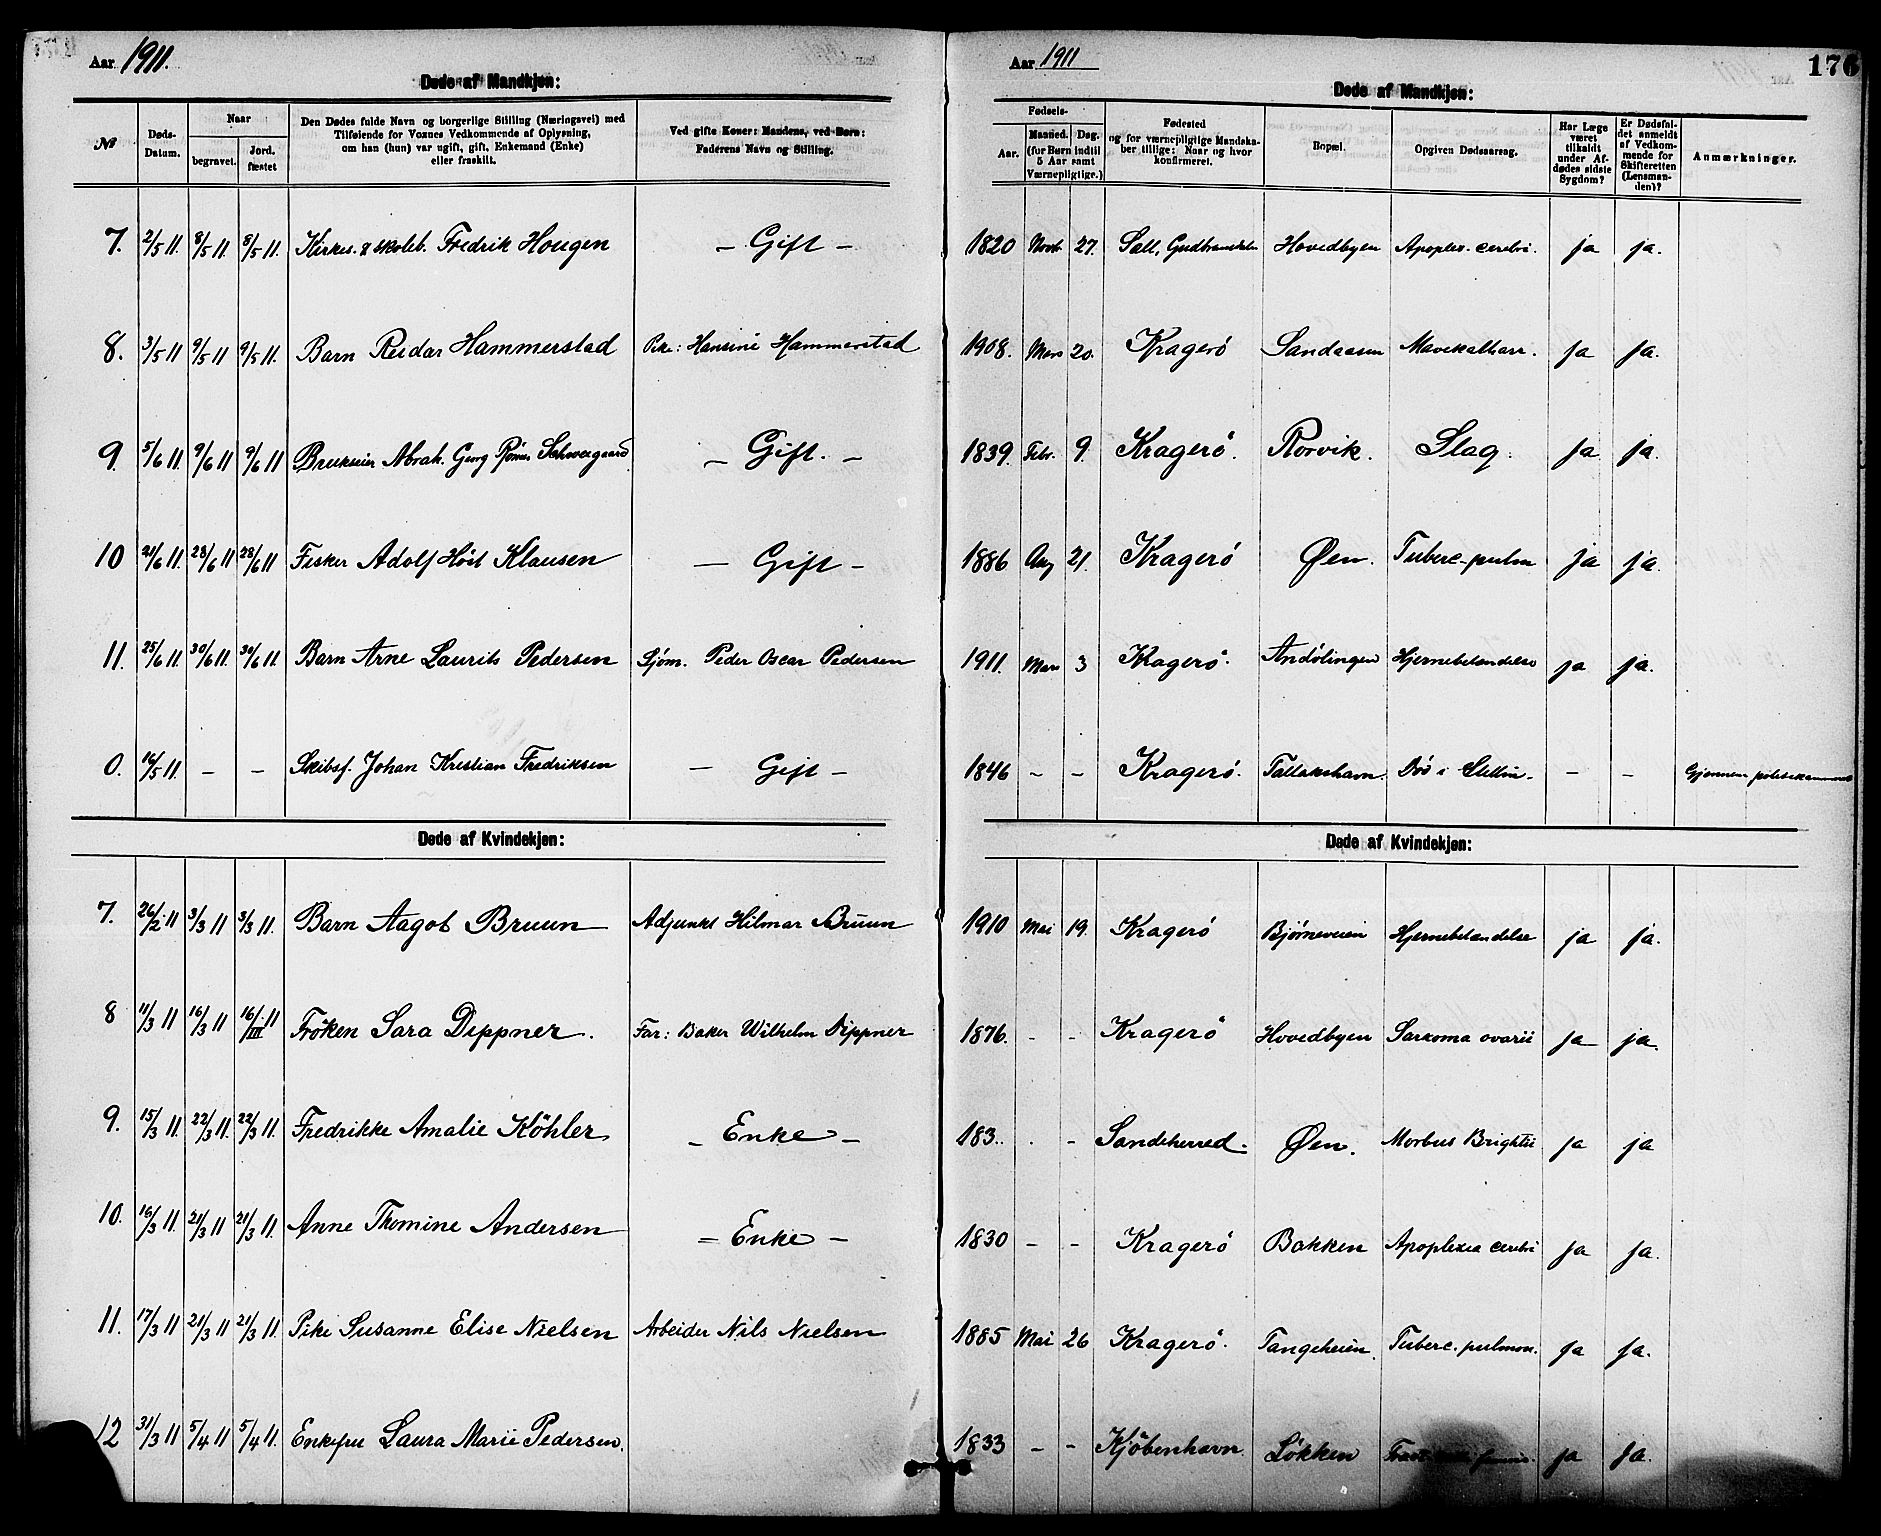 Aar 1911.
Døde af Mandkjøn:
№ | Døds-Datum. | Naar begravet. | Jord. fæstet | Den Dødes fulde Navn og borgerlige Stilling (Næringsvei) med Tilføiende for Voxnes Vedkommende af Oplysning, om han (hun) var ugift, gift, Enkemand (Enke) eller fraskilt. | Ved gifte Koner: Mandens, ved Børn: Faderens Navn og Stilling.
7. 2/5 11. 8/5 11. 8/5 11. Kirkes. & skoleb. Fredrik Hougen – Gift –
8. 3/5 11 9/5 11. 9/5 11. Barn Reidar Hammerstad Pike: Hansine Hammerstad
9. 5/6 11. 9/6 11 9/6 11 Brukseier Abrah. Georg Rømer Schweigaard – Gift. –
10 21/6 11. 28/6 11 28/6 11 Fisker Adolf Höit Klausen – Gift –
11. 25/6 11. 30/6 11. 30/6 11. Barn Arne Laurits Pedersen Sjøm. Peder Oscar Pedersen
0. 16/5 11. – – Skibsf. Johan Kristian Fredriksen – Gift –
Døde af Kvindekjøn:
7. 26/2 11 3/3 11 3/3 11. Barn Aagot Bruun Adjunkt Hilmar Bruun
8 11/3 11 16/3 11 16/III 11 Frøken Sara Dippner. Far: Baker Wilhelm Dippner
9. 15/3 11. 22/3 11. 22/3 11. Fredrikke Amalie Köhler – Enke –
10. 16/3 11. 21/3 11 21/3 11. Anne Thomine Andersen – Enke –
11. 17/3 11 21/3 11 21/3 11. Pike Susanne Elise Nielsen Arbeider Nils Nielsen
12 31/3 11 5/4 11 5/4 11. Enkefru Laura Marie Pedersen.
Aar 1911
176
Døde af Mandkjøn:
Fødsels- Aar. | Maaned. Dag. (for Børn indtil 5 Aar samt Værnepligtige.) | Fødested og for værnepligtige Mandskaber tillige: Naar og hvor konfirmeret. | Bopæl. | Opgiven Dødsaarsag. | Har Læge været tilkaldt under Afdødes sidste Sygdom? | Er Dødsfaldet anmeldt af Vedkommende for Skifteretten (Lensmanden)? | Anmærkninger.
1820 Novb 27. Sell, Gudbrandsdalen Hovedbyen Apoplex. cerebri. ja ja.
1908. Mars 20. Kragerö Sandaasen Mavekatharr. ja ja.
1839. Febr. 9. Kragerö. Rørvik. Slag. ja ja.
1886 Aug 21. Kragerö Øen. Tuberc. pulm ja ja.
1911. Mars 3 Kragerö. Andölingen Hjernebetændelse ja ja.
1846 – – Kragerö. Tallakshavn. Dö i Stettin. – – Gjennem politikammeret
Døde af Kvindekjøn:
1910 Mai 19. Kragerö Bjørneveien Hjernebetændelse ja ja.
1876. – – Kragerö Hovedbyen Sarkoma ovarii ja ja.
183.. . – Sandeherred. Øen. Morbus Brightii ja ja
1830 – – Kragerö Bakken Apoplexia cerebri ja ja.
1885 Mai 26 Kragerö. Tangeheien. Tuberc. pulmon. ja ja.
1833 – – Kjöbenhavn. Lökken ja ja.